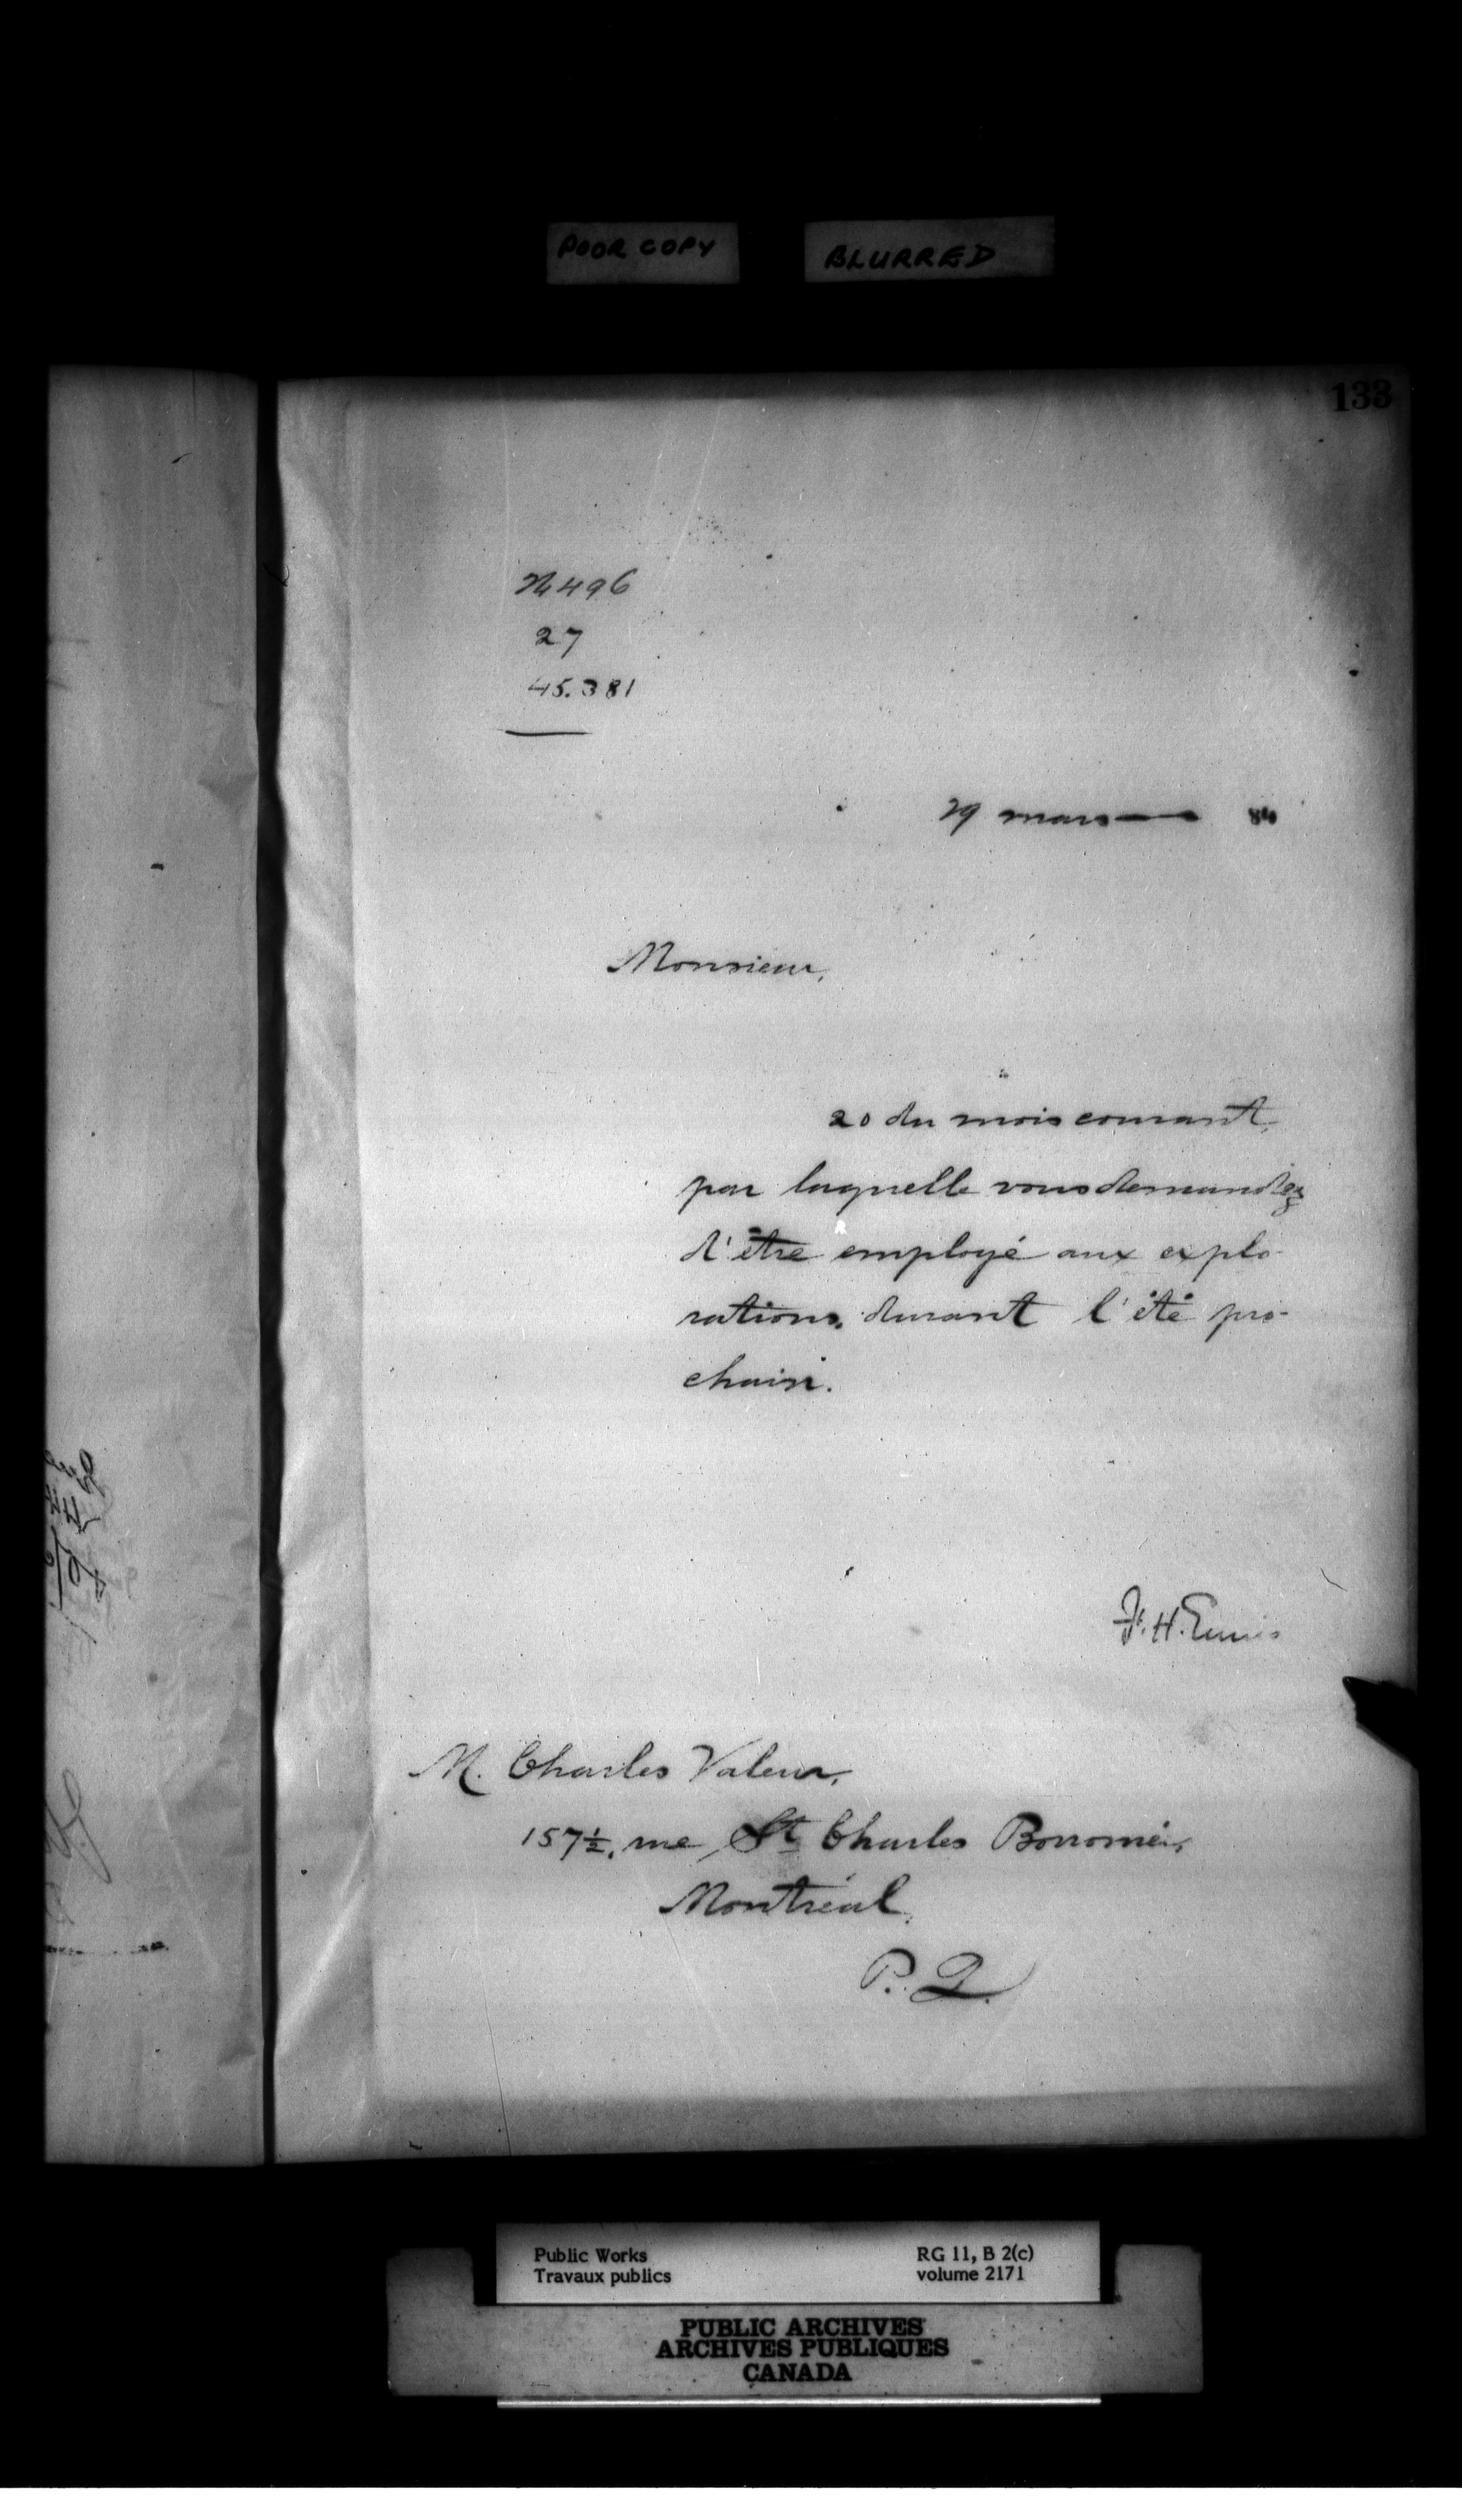 POOR COPY BLURRED
133
496
27
45.381
29 mars 84
Monsieur,
20 du mois courant,
par laquelle vous demandez
d'être employé aux explo-
rations, durant l'été pro-
chain.
F. H. Ennis
M. Charles Valeur,
157½, rue St Charles Borromée,
Montréal,
P. Q.
Public Works RG 11, B 2(c)
Travaux publics volume 2171
PUBLIC ARCHIVES
ARCHIVES PUBLIQUES
CANADA